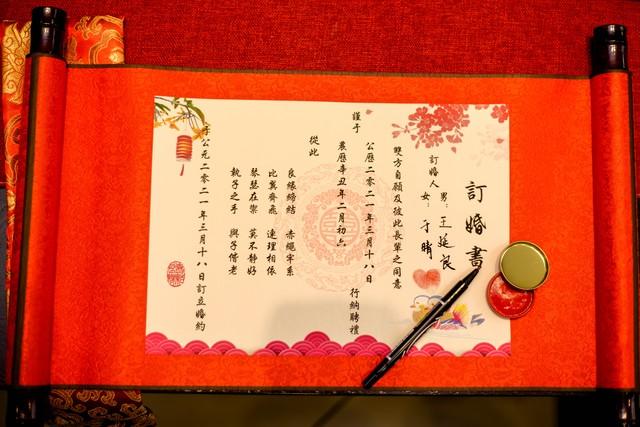 訂婚書
訂婚人 男：王延良
女：于晴
雙方自願及彼此長輩之同意
謹于 公歷二零二一年三月十八日
農歷辛丑年二月初六 行納聘禮
從此
良緣締結 赤繩牢系
比翼齊飛 連理相依
琴瑟在禦 莫不靜好
執子之手 與子偕老
于公元二零二一年三月十八日訂立婚約